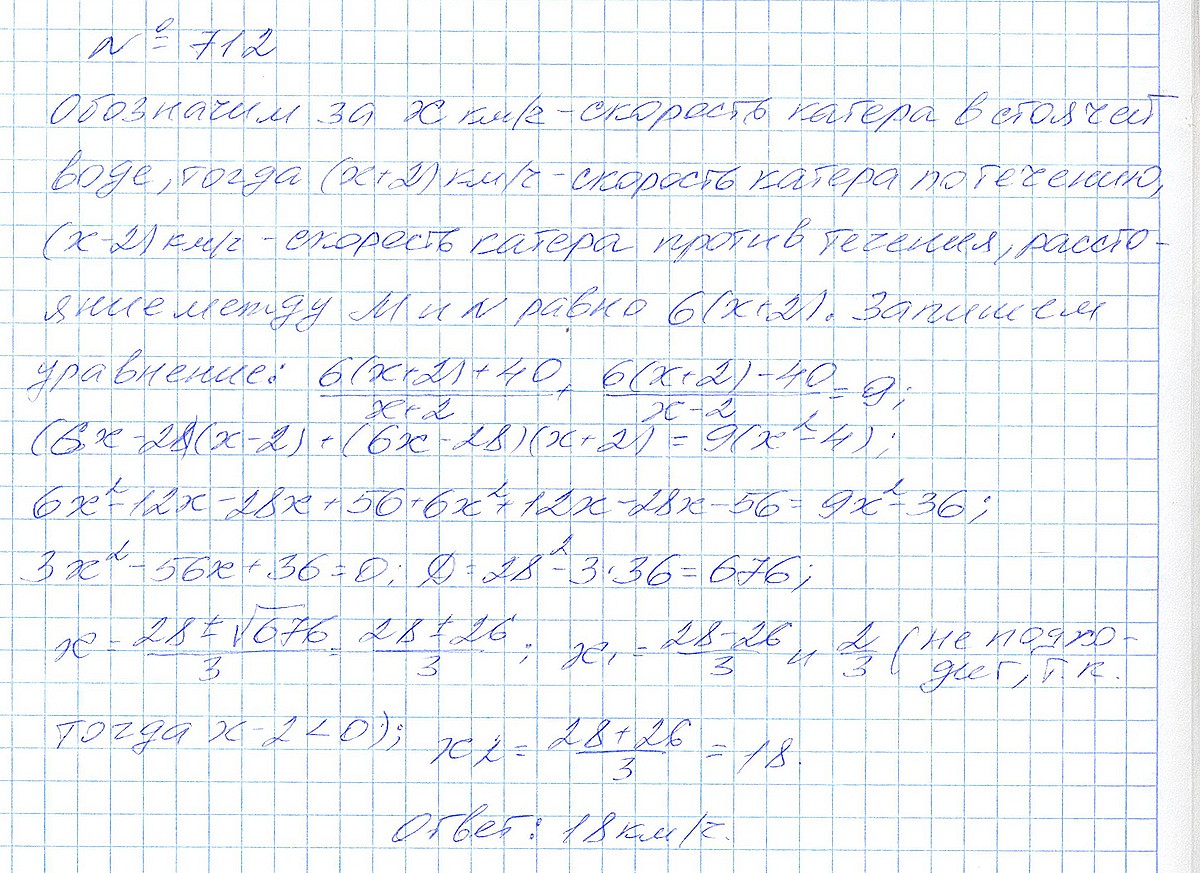 № 712
Обозначим за x км/ч - скорость катера в стоячей
воде, тогда (x+2) км/ч - скорость катера по течению,
(x-2) км/ч - скорость катера против течения, рассто-
яние между M и N равно 6(x+2). Запишем
уравнение: (6(x+2)+40)/(x+2) + (6(x+2)-40)/(x-2) = 9;
(6x-28)(x-2) + (6x-28)(x+2) = 9(x²-4);
6x²-12x-28x+56+6x²+12x-28x-56 = 9x²-36;
3x²-56x+36=0; D = 28²-3·36 = 676;
x = (28±√676)/3 = (28±26)/3; x₁ = (28-26)/3 и 2/3 (не подхо-
дит, т.к.
тогда x-2<0); x2 = (28+26)/3 = 18.
Ответ: 18 км/ч.